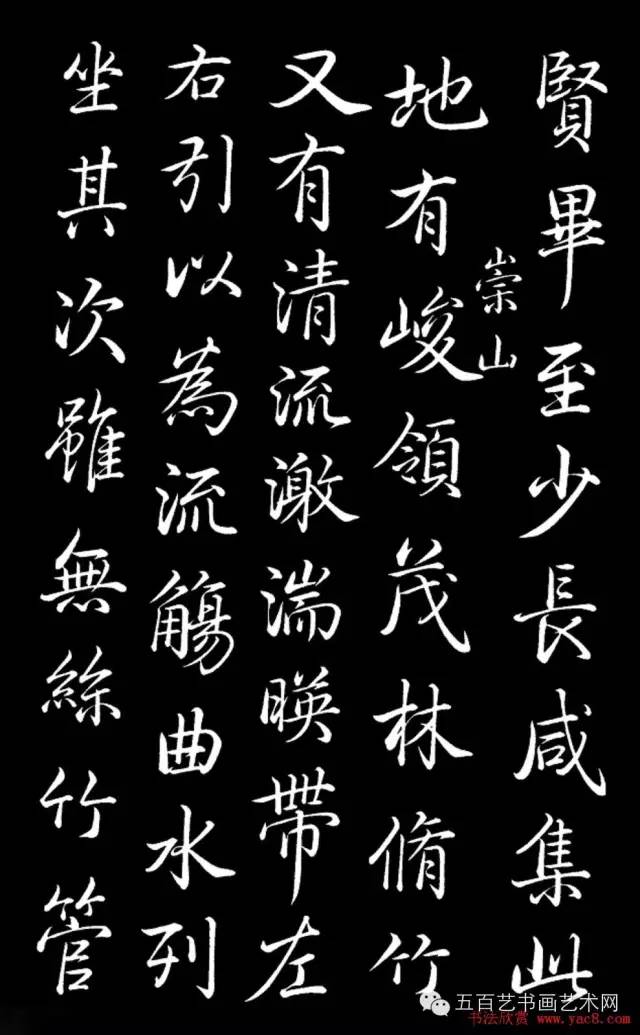 賢畢至少長咸集此
地有崇山峻領茂林脩竹
又有清流激湍暎帶左
右引以為流觴曲水列
坐其次雖無絲竹管
五百艺书画艺术网
书法欣赏 www.yac8.com